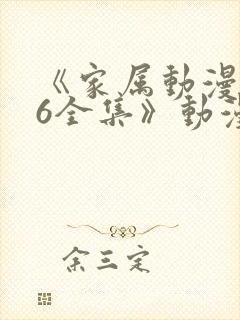 《家属动漫
6全集》动漫
余三定